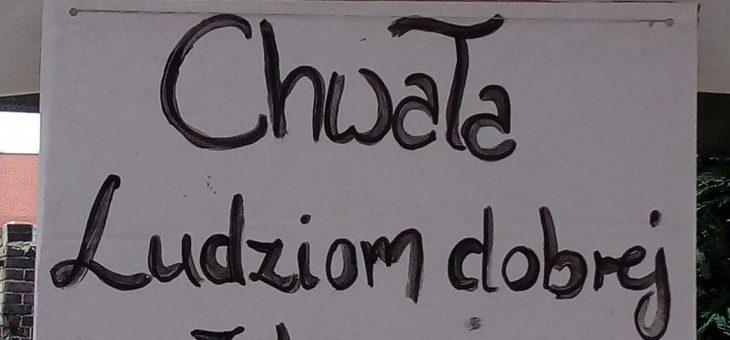 Chwała
Ludziom dobrej